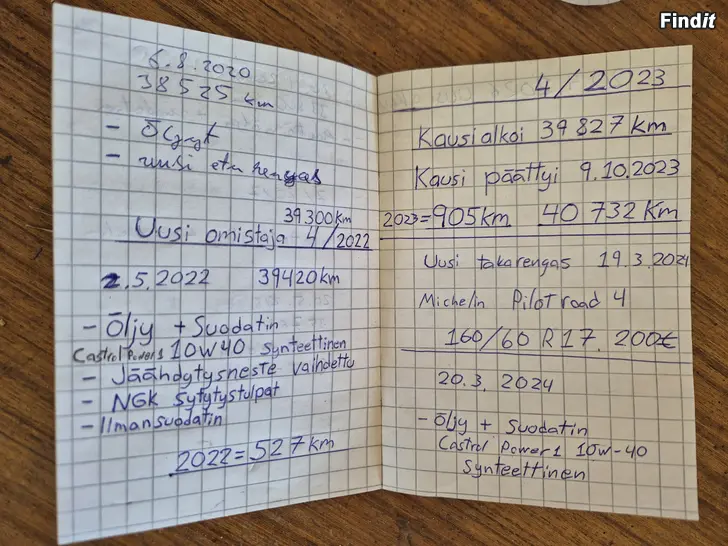 Findit
6.8.2020
38525 km
- Öljyt
- uusi eturengas
39300km
Uusi omistaja 4/2022
2.5.2022 39420km
- Öljy + Suodatin
Castrol Power1 10W40 Synteettinen
- Jäähdytysneste vaihdettu
- NGK Sytytystulpat
- Ilmansuodatin
2022 = 527km
4/2023
Kausi alkoi 39827km
Kausi päättyi 9.10.2023
2023 = 905km 40 732Km
Uusi takarengas 19.3.2024
Michelin Pilot road 4
160/60 R17. 200€
20.3.2024
- Öljy + Suodatin
Castrol Power1 10w-40
Synteettinen